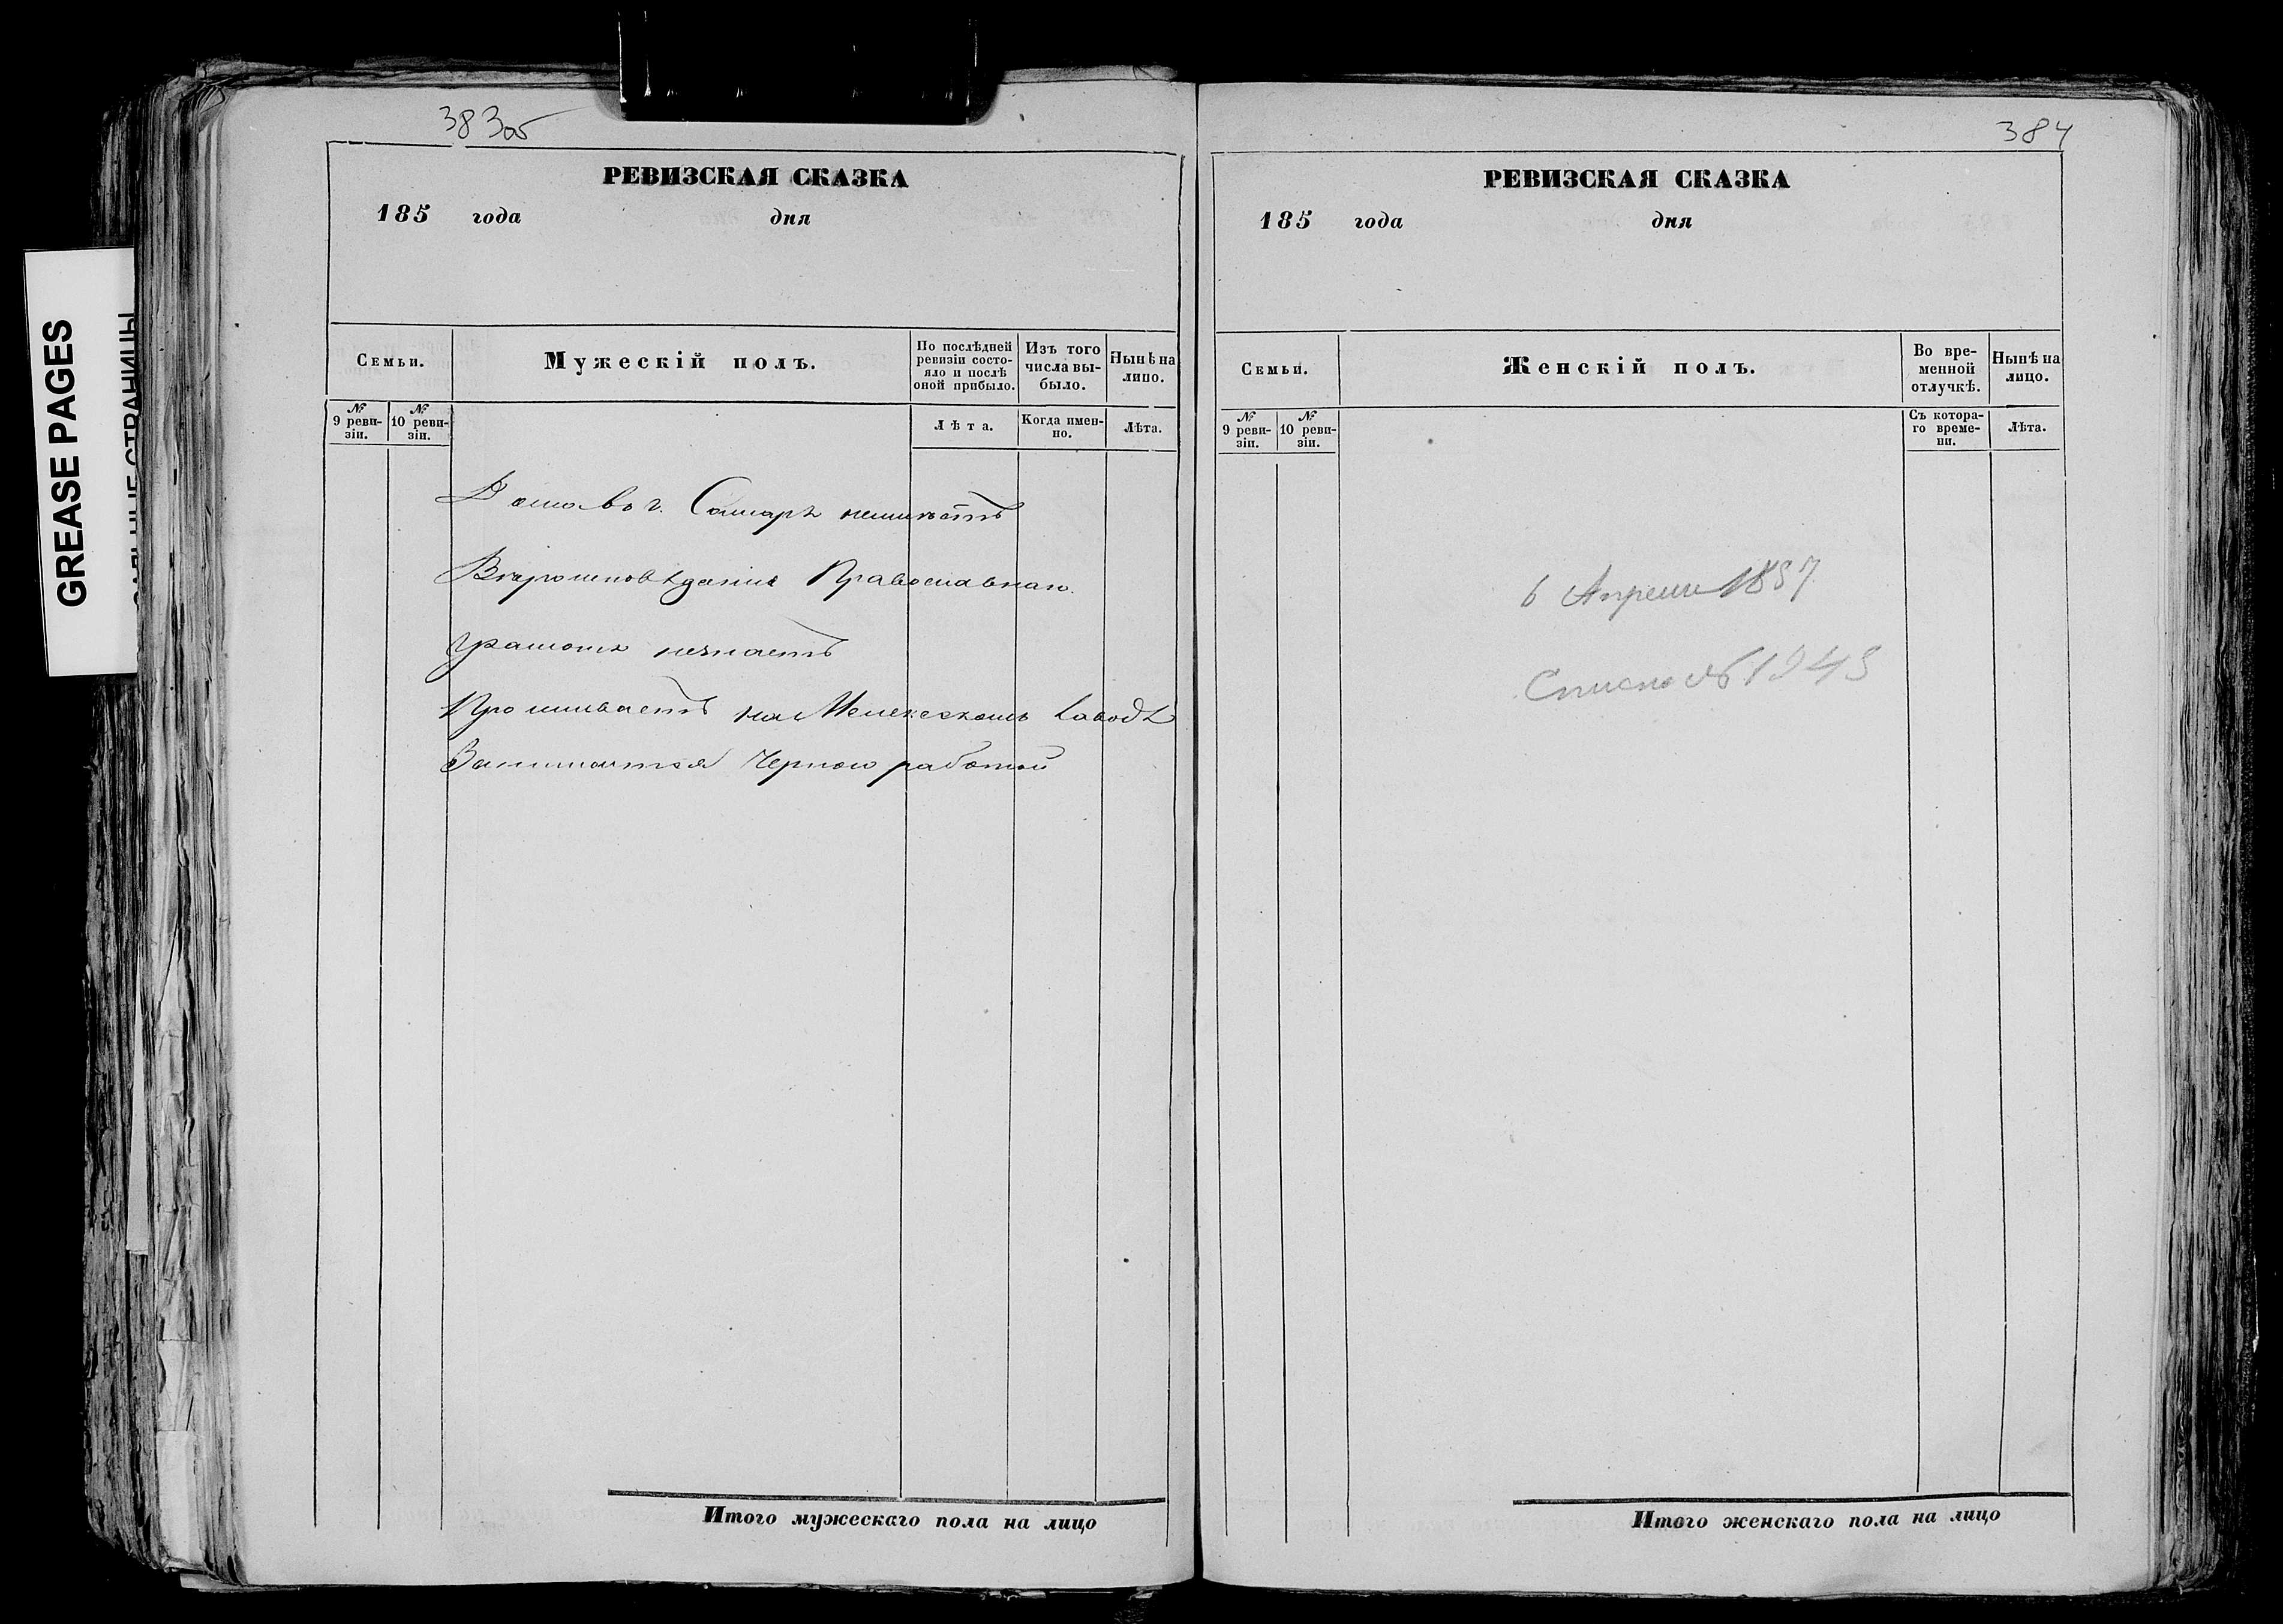 GREASE PAGES
383об
РЕВИЗСКАЯ СКАЗКА
185 года дня
Семьи.
Мужескій полъ.
По послѣдней ревизіи состояло и послѣ оной прибыло.
Изъ того числа выбыло.
Нынѣ на лицо.
№ 9 ревизіи.
№ 10 ревизіи.
Лѣта.
Когда именно.
Лѣта.
Дома въ г. Самарѣ неимѣетъ
Вѣроисповѣданія Православнаго.
грамотѣ незнаетъ
Проживаетъ на Мелекескомъ заводѣ
Занимается черною работой
Итого мужескаго пола на лицо
384
РЕВИЗСКАЯ СКАЗКА
185 года дня
Семьи.
Женскій полъ.
Во временной отлучкѣ.
Нынѣ на лицо.
№ 9 ревизіи.
№ 10 ревизіи.
Съ котораго времени.
Лѣта.
6 Апреля 1857
1943
Итого женскаго пола на лицо